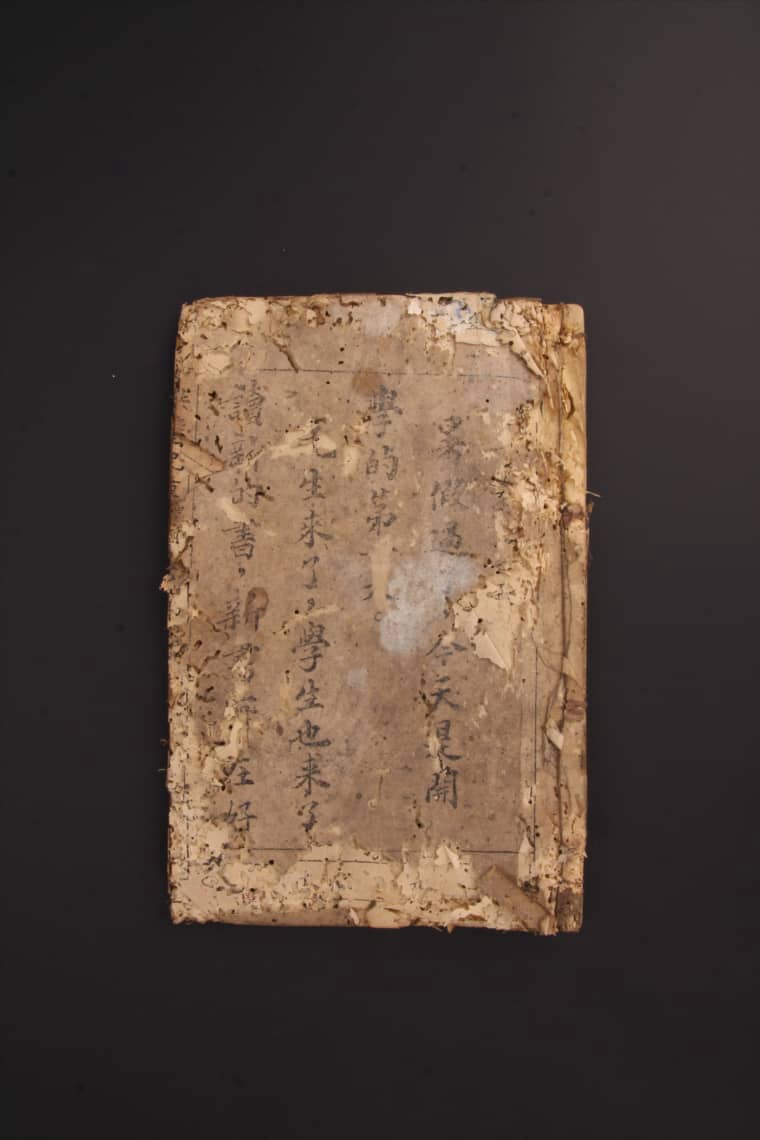 暑假過，今天是開
學的第天。
先生來了，學生也来了。
讀新的書，新書在好